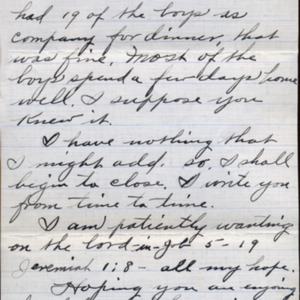 had 19 of the boys as
company for dinner, that
was fine. Most of the
boys spend a few days home
well. I suppose you
Knew it.
I have nothing that
I might add. so. I shall
begin to close. I write you
from time to time.
I am patiently wanting
on the lord-in-Job 5-19
Jeremiah 1:8- all my hope.
Hoping you are enjoying